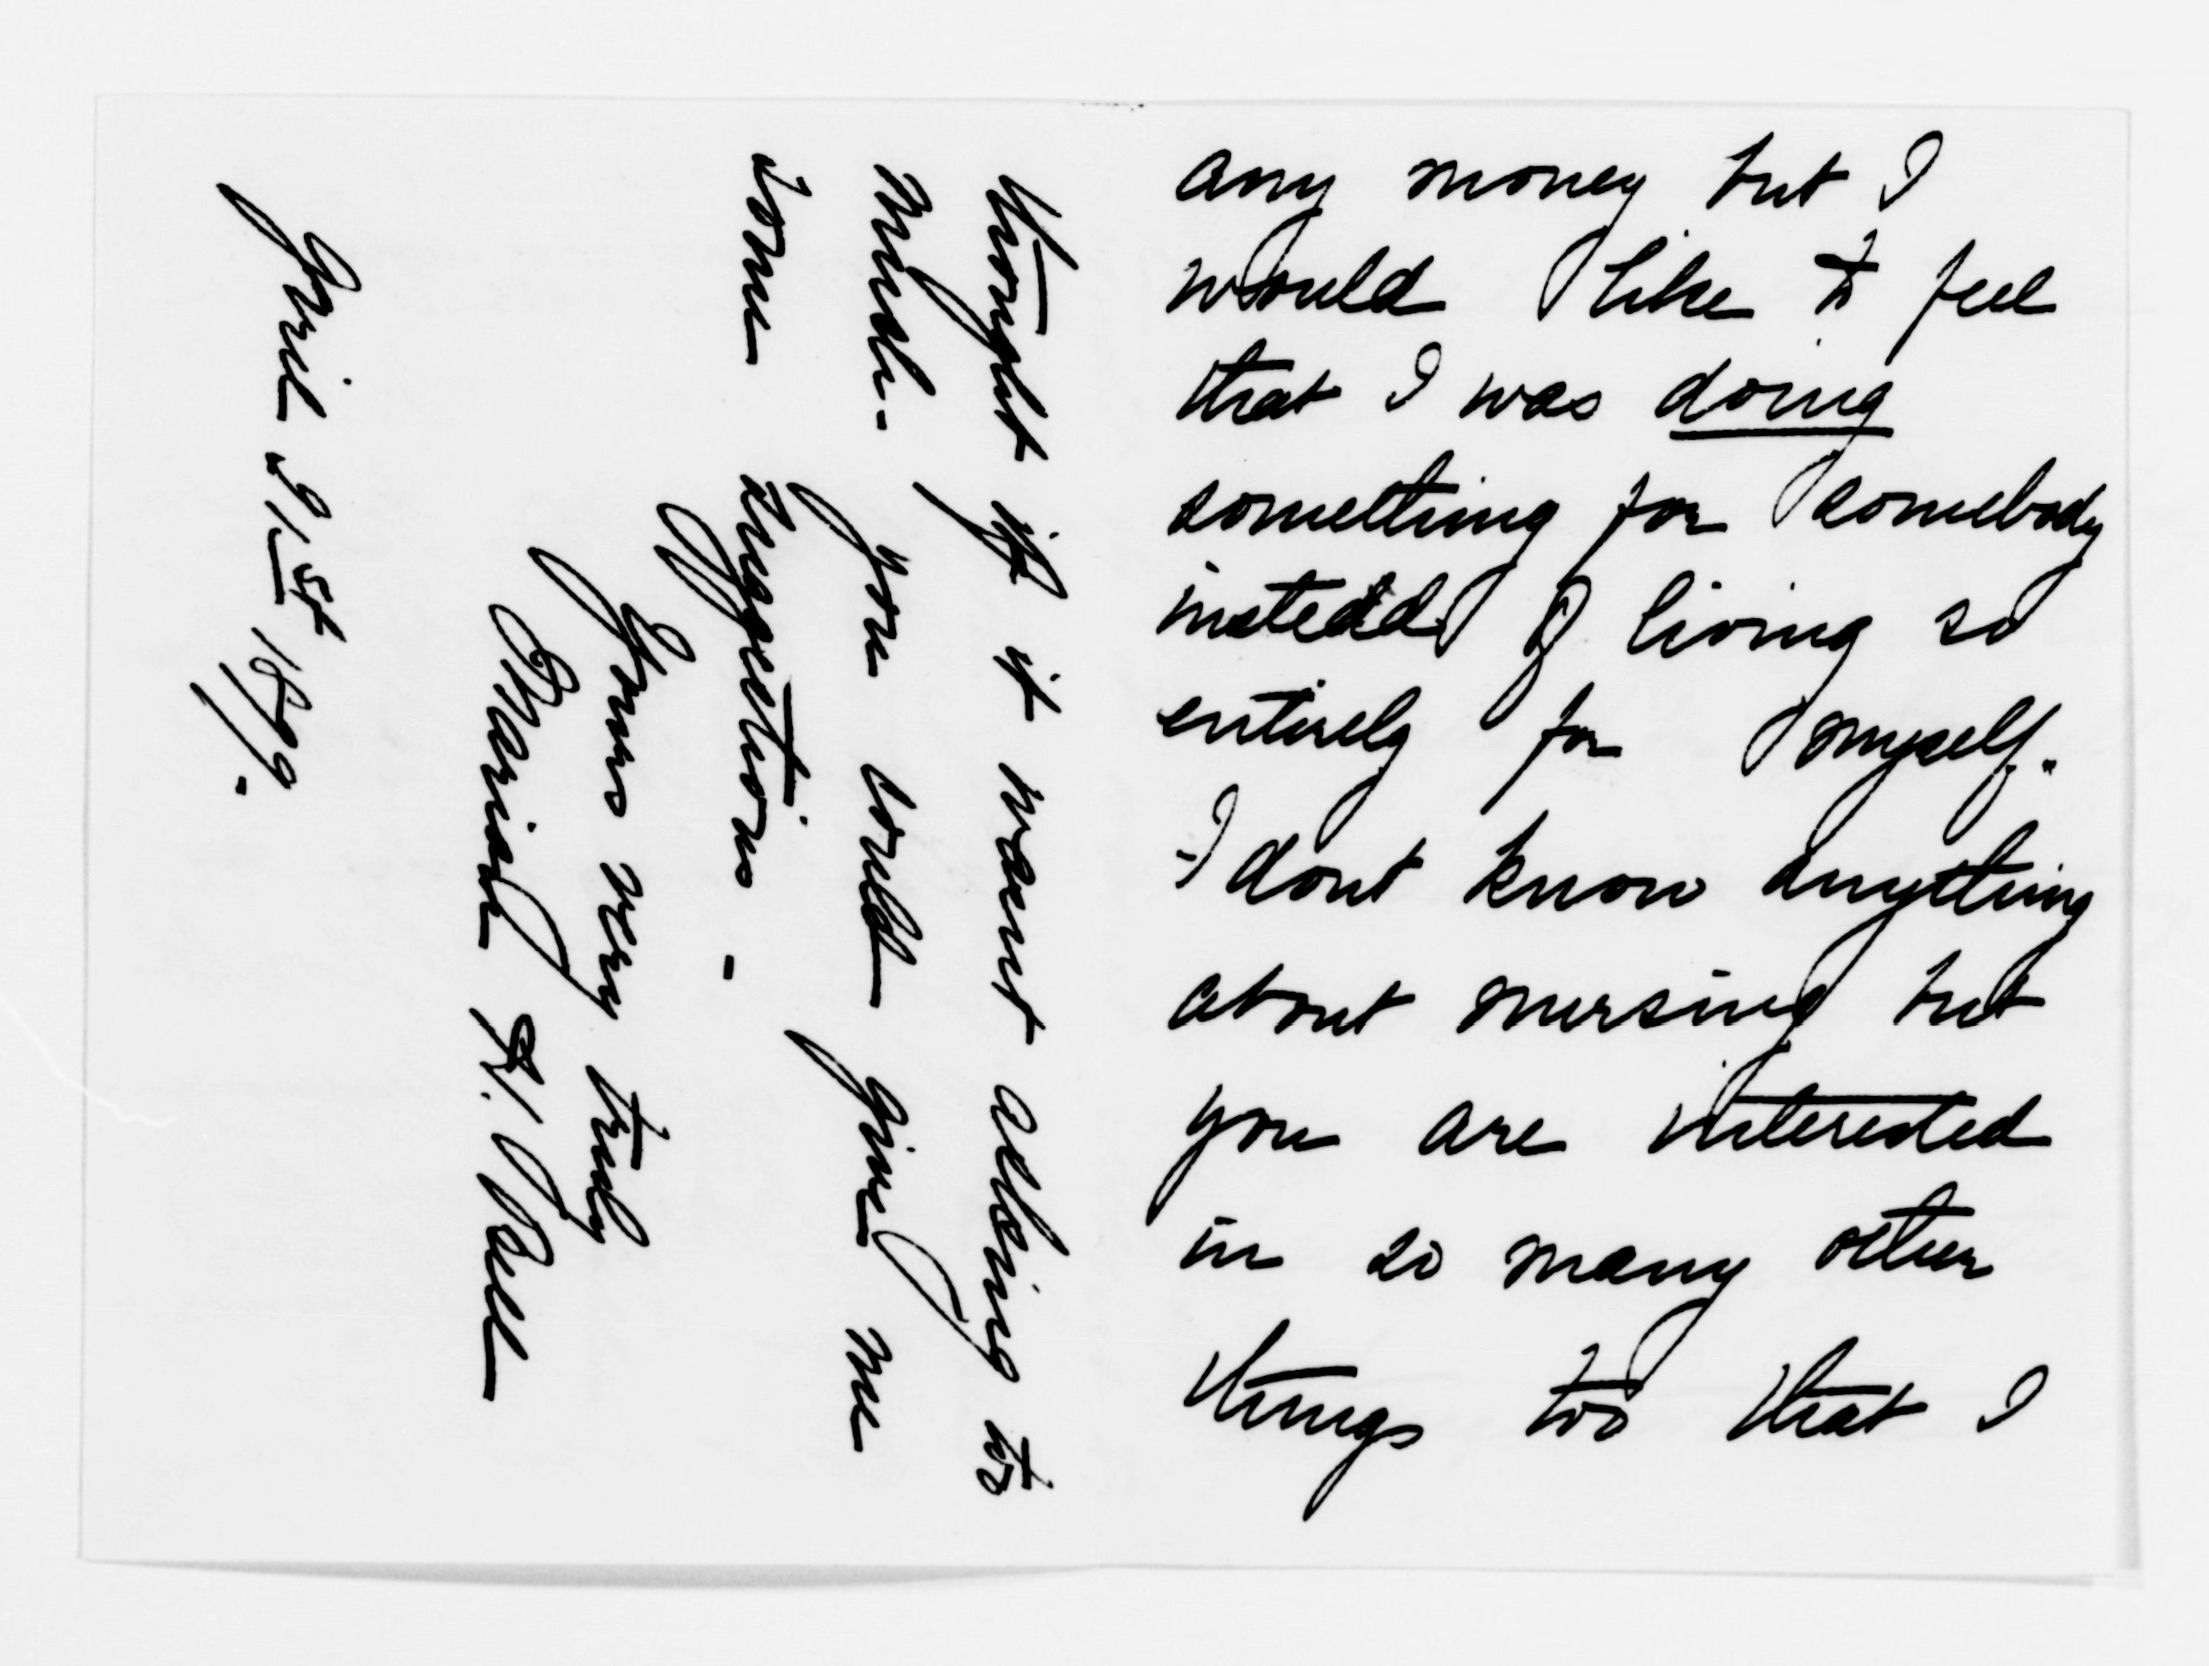 any money but I
would like to feel
that I was doing
something for somebody
instead of living so
entirely for myself.
I dont know anything
about nursing but
you are interested
in so many other
things too that I
thought if it wasnt asking too
much - you could give me
some suggestions -
Yours very truly
Mariah H. Bell
April 9, 1st 1899.